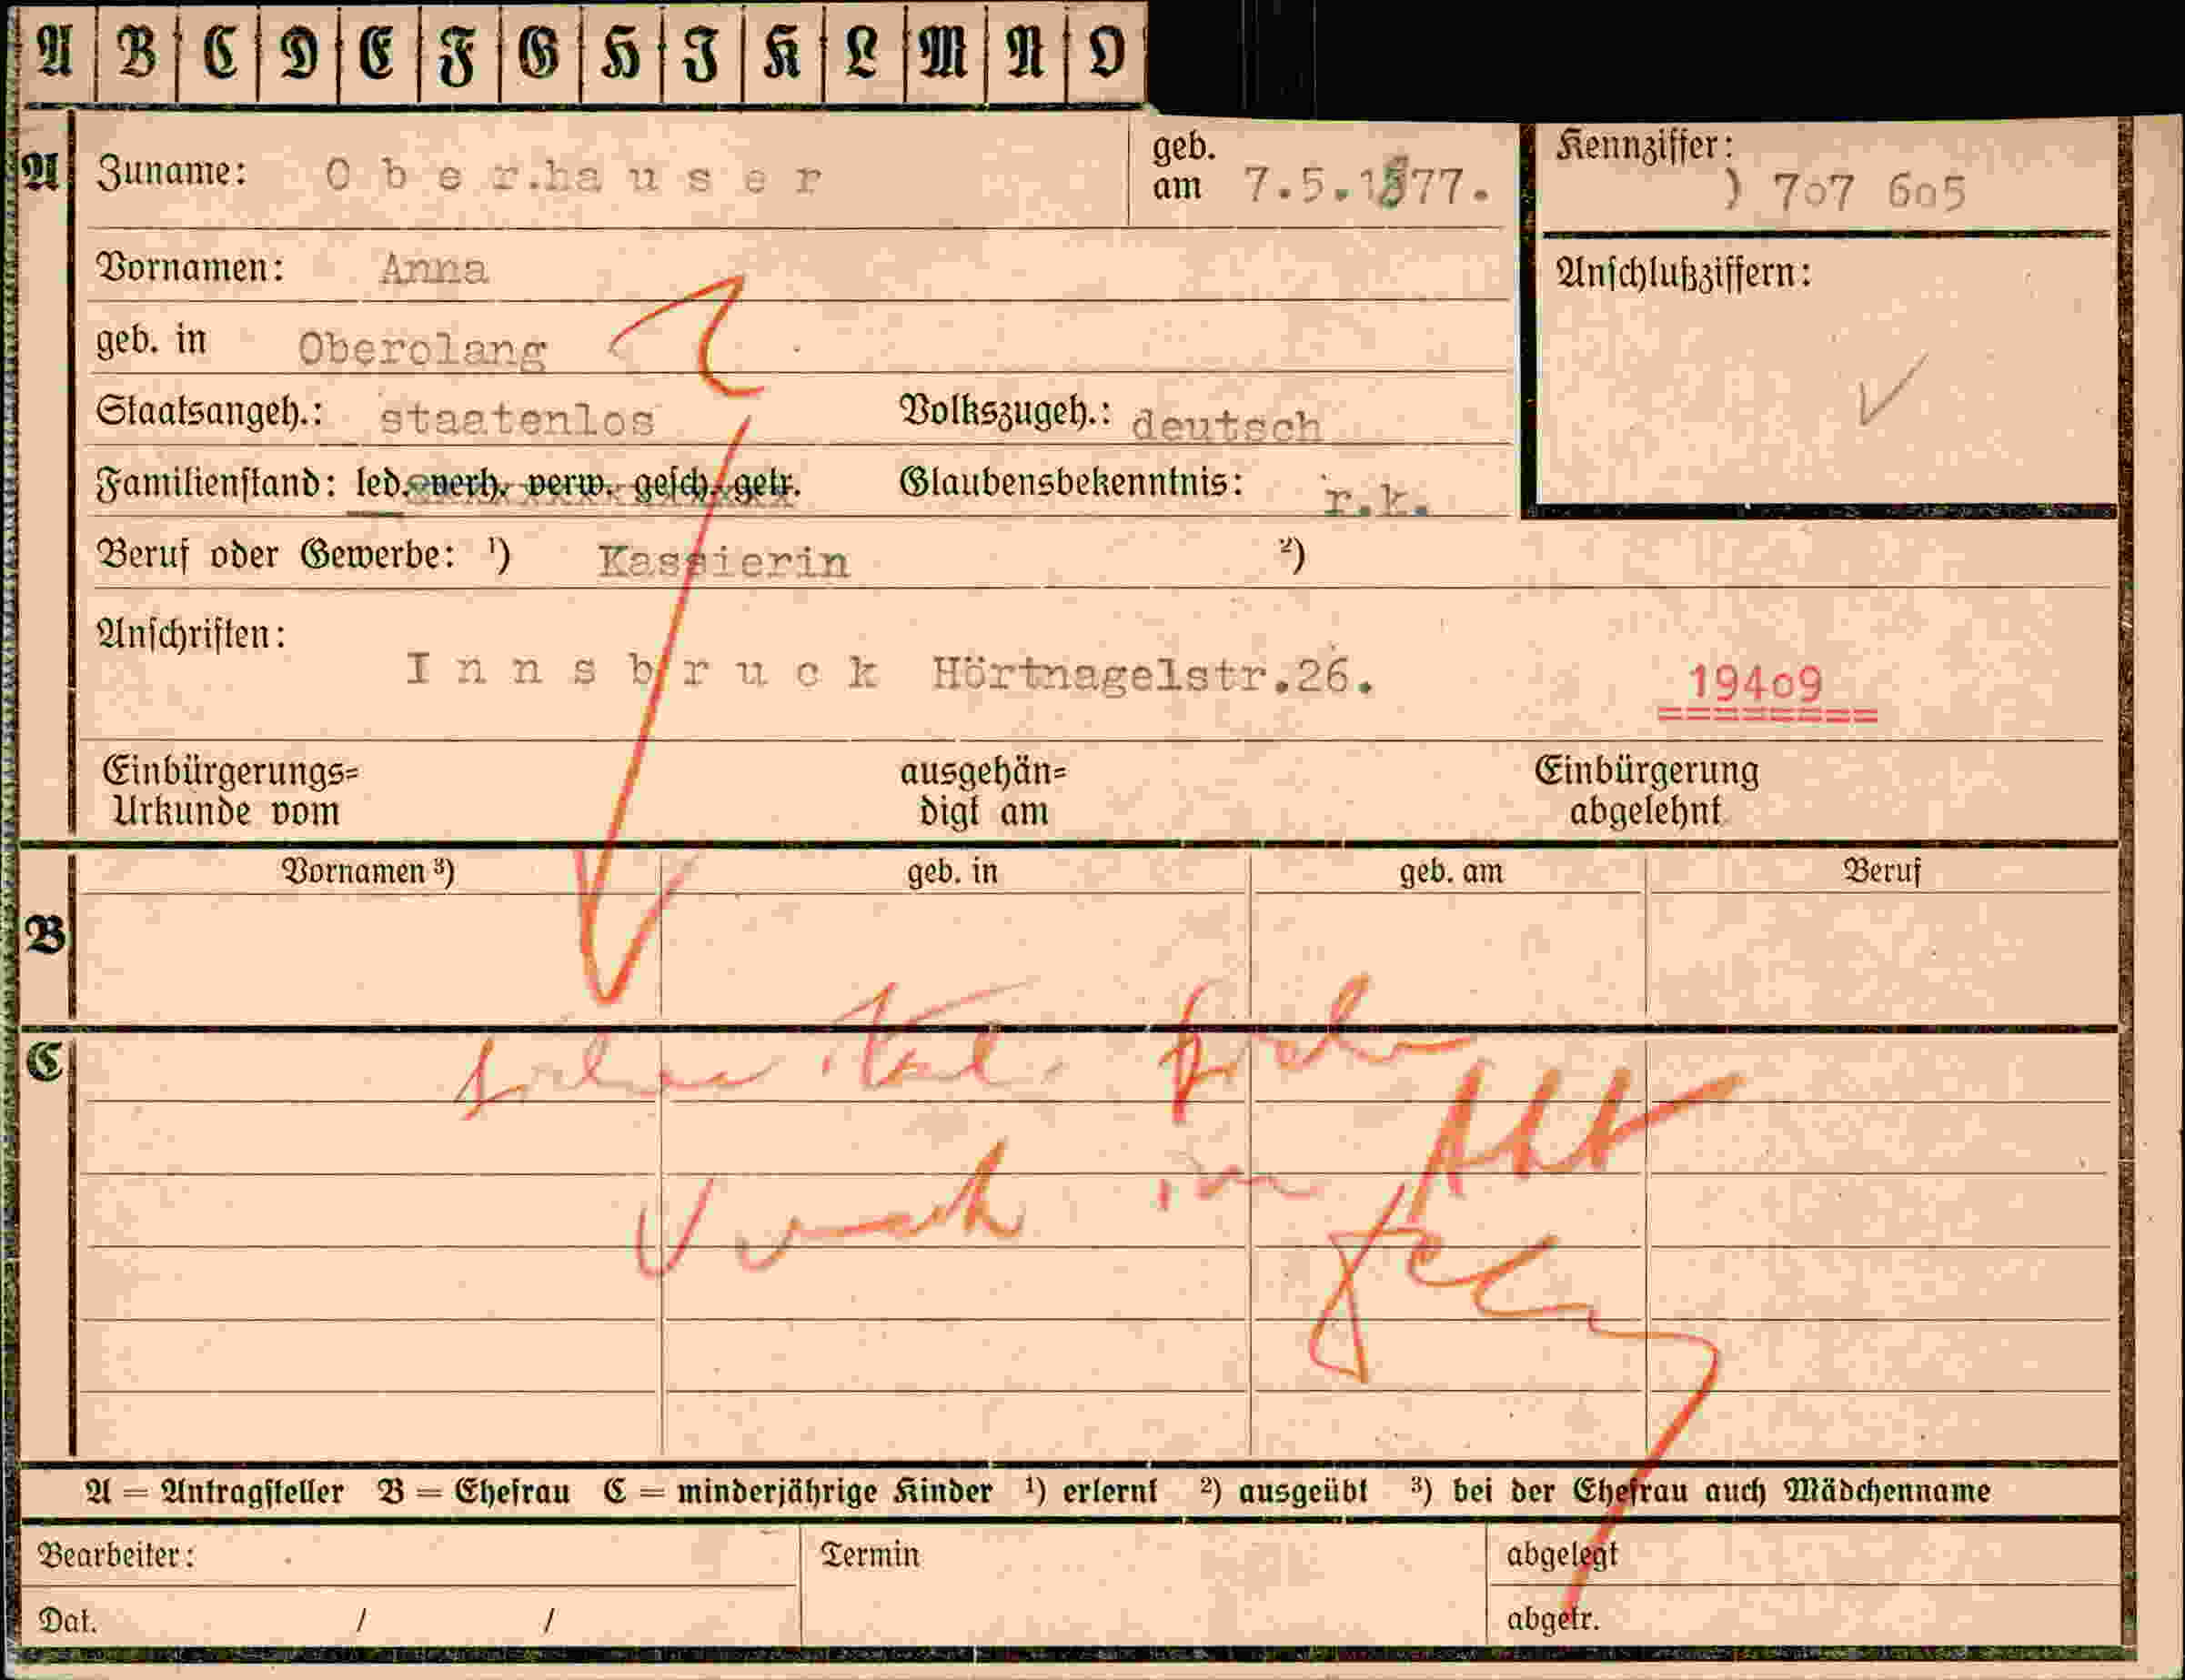 A B C D E F G H I K L M N O
A Zuname: O b e r.ha u s e r geb. am 7.5.1877. Kennziffer: ) 707 605
Vornamen: Anna Anschlußziffern:
geb. in Oberolang
Staatsangeh.: staatenlos Volkszugeh.: deutsch
Familienstand: led. verh. verw. gesch. getr. Glaubensbekenntnis: r.k.
Beruf oder Gewerbe: ¹) Kassierin ²)
Anschriften:
I n n s b r u c k Hörtnagelstr.26. 19409
Einbürgerungs= ausgehän= Einbürgerung
Urkunde vom digt am abgelehnt
Vornamen ³) geb. in geb. am Beruf
B
C
A = Antragsteller B = Ehefrau C = minderjährige Kinder ¹) erlernt ²) ausgeübt ³) bei der Ehefrau auch Mädchenname
Bearbeiter: Termin abgelegt
Dat. / / abgetr.